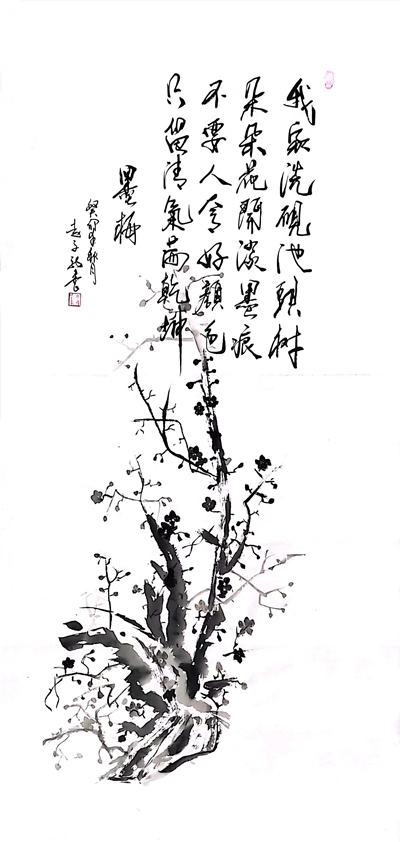 我家洗硯池頭树
朵朵花開淡墨痕
不要人夸好顏色
只留清氣滿乾坤
墨梅
癸卯年秋月